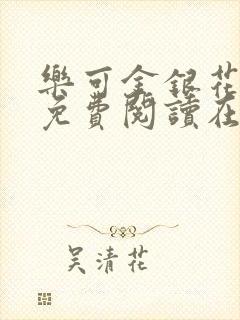 樂可金銀花
免費閱讀在
吴清花